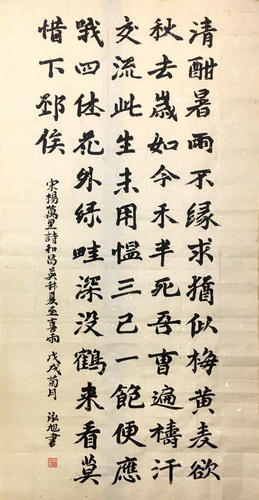 清酣暑雨不緣求猶似梅黄麦欲
秋去歲如今禾半死吾曹遍禱汗
交流此生未用愠三已一飽便應
哦四休花外緑畦深没鶴来看莫
惜下邳侯
宋楊萬里詩和昌英叔夏至喜雨 戊戌菊月 泓旭書